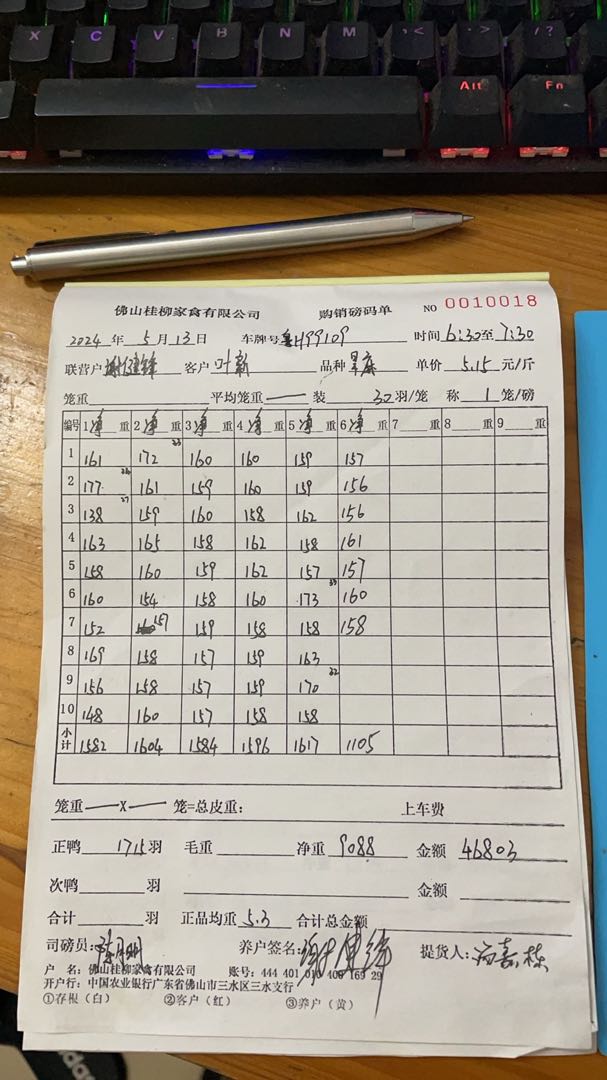 X C V B N M < > /?
Alt Fn
佛山桂柳家禽有限公司 购销磅码单 NO 0010018
2024 年 5 月 13 日 车牌号 粤H99109 时间 6:30至7:30
联营户 客户 叶新 品种 单价 5.15 元/斤
笼重 平均笼重 — 装 32 羽/笼 称 1 笼/磅
编号 1净重 2净重 3净重 4净重 5净重 6净重 7重 8重 9重
1 161 172 33 160 160 159 157
2 177 161 159 160 159 156
3 138 27 159 160 158 162 156
4 163 165 158 162 158 161
5 158 160 159 162 157 157
6 160 154 158 160 173 160
7 152 157 159 158 158 158
8 169 158 157 159 163
9 156 158 157 159 170
10 148 160 157 158 158
小计 1582 1604 1584 1596 1617 1105
笼重—X—笼=总皮重: 上车费
正鸭 1715 羽 毛重 净重 9088 金额 46803
次鸭 羽 金额
合计 羽 正品均重 5.3 合计总金额
司磅员: 养户签名: 提货人:
户 名:佛山桂柳家禽有限公司 账号: 444 401 010 400 169 29
开户行:中国农业银行广东省佛山市三水区三水支行
①存根(白) ②客户(红) ③养户(黄)